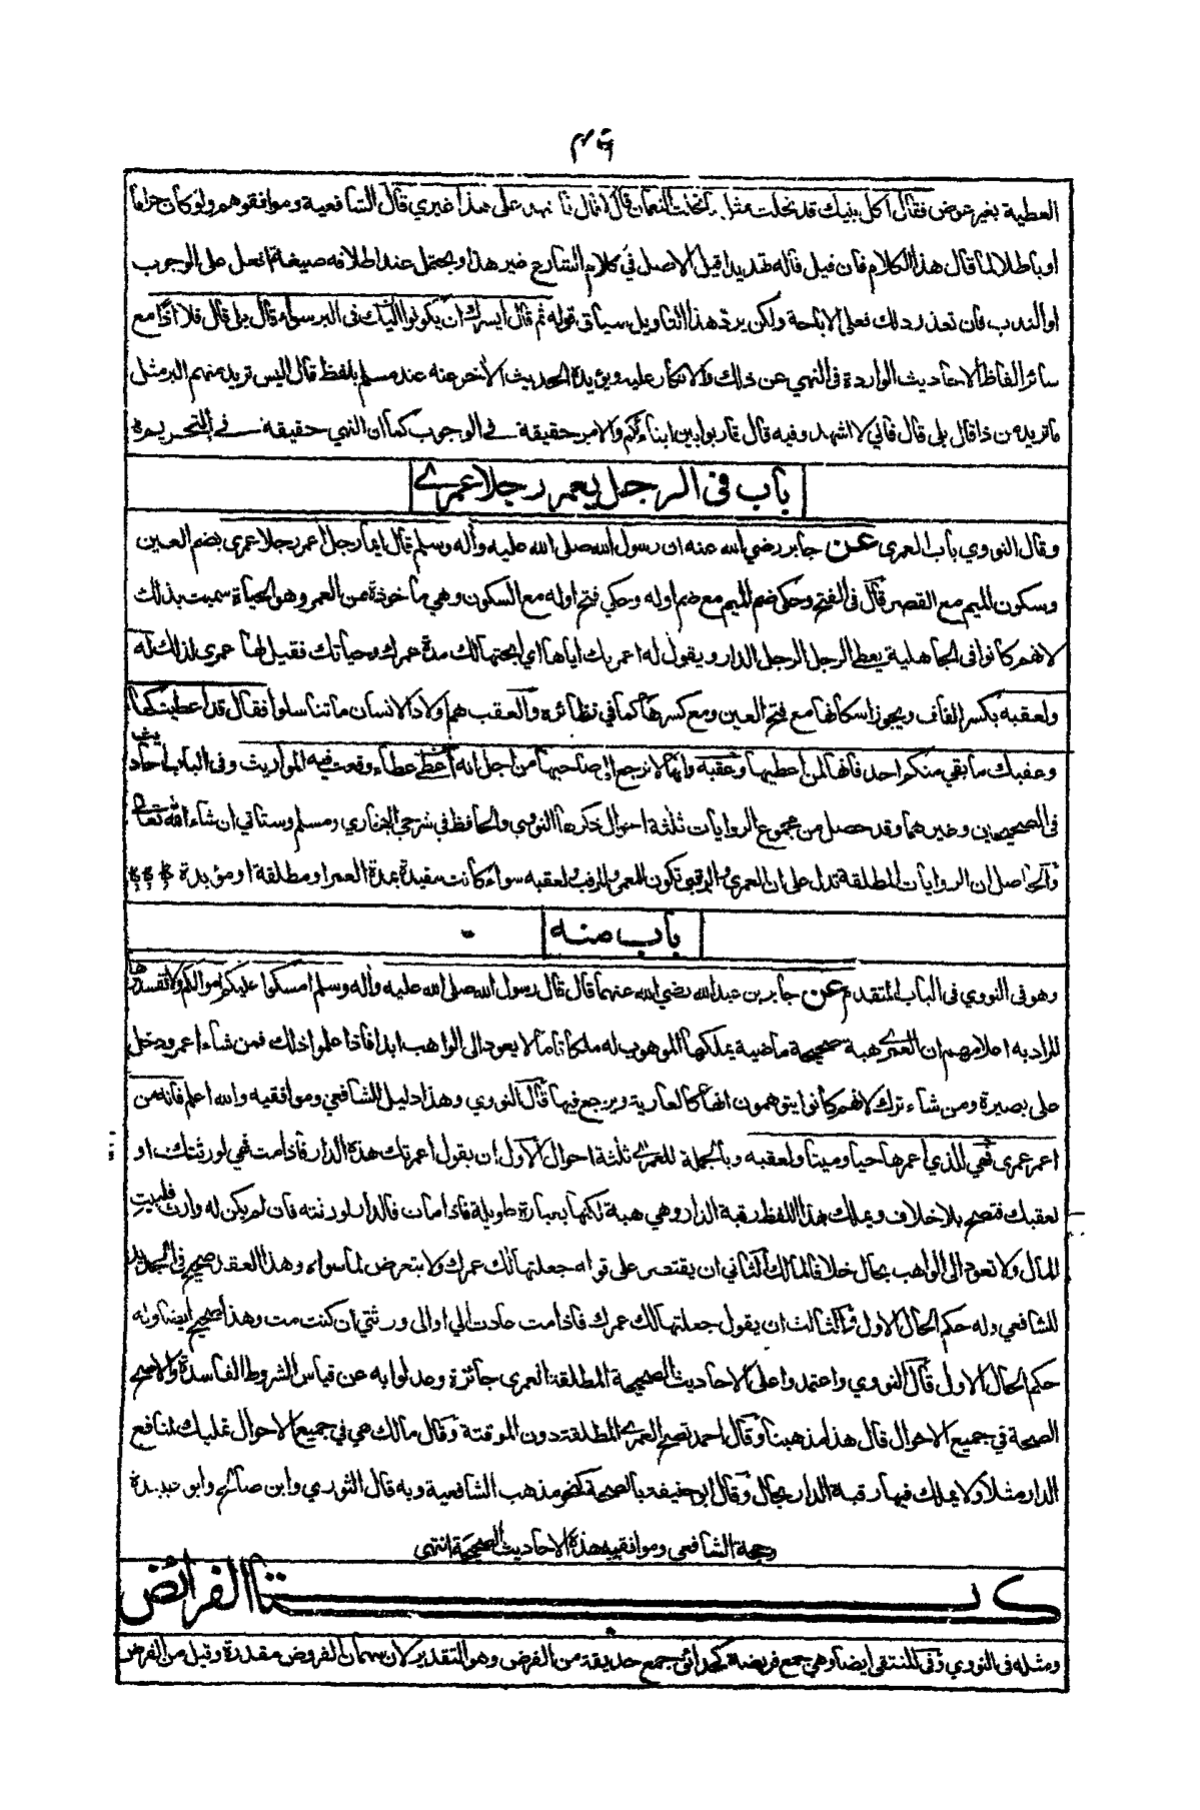 ٤٩
العطية بغير عوض فقال اكل بنيك قد نحلت مثل ما نحلت النعمان قال لا قال فاشهد على هذا غيري قال الشافعية وموافقوهم ولو كان حراما
او باطلا لما قال هذا الكلام فان قيل قاله تهديدا قيل الاصل في كلام الشارع غير هذا ويحتمل عند اطلاقه صيغة افعل على الوجوب
او الندب فان تعذر ذلك فعلى الاباحة ولكن يرد هذا التاويل سياق قوله ثم قال ايسرك ان يكونوا اليك فى البر سواء قال بلى قال فلا اذا مع
سائر الفاظ الاحاديث الواردة فى النهي عن ذلك والانكار عليه ويؤيده الحديث الآخر عنه عند مسلم بلفظ قال اليس تريد منهم البر مثل
ما تريد من ذا قال بلى قال فاني لا اشهد وفيه قال قاربوا بين ابنائكم والامر حقيقة في الوجوب كما ان النهي حقيقة في التحريم
باب فى الرجل يعمر رجلا عمرى
وقال النووي باب العمرى عن جابر رضي الله عنه ان رسول الله صلى الله عليه وأله وسلم قال ايما رجل اعمر رجلا عمرى بضم العين
وسكون الميم مع القصر قال فى الفتح وحكى ضم الميم مع ضم اوله وحكي فتح اوله مع السكون وهي مأخوذة من العمر وهو الحياة سميت بذلك
لانهم كانوا فى الجاهلية يعطى الرجل الرجل الدار ويقول له اعمرتك اياها اي ابحتها لك مدة عمرك وحياتك فقيل لها عمرى لذلك له
ولعقبه بكسر القاف ويجوز اسكانها مع فتح العين ومع كسرها كما في نظائره والعقب هم اولاد الانسان ما تناسلوا فقال قد اعطيتكها
وعقبك ما بقي منكم احد فانها لمن اعطيها وعقبه وانها لا ترجع الى صاحبها من اجل انه اعطى عطاء وقعت فيه المواريث وفى الباب احاديث
فى الصحيحين وغيرهما وقد حصل من مجموع الروايات ثلثة احوال ذكرها النووي والحافظ فى شرحي البخاري ومسلم وستاتي ان شاء الله تعالى
والحاصل ان الروايات المطلقة تدل على ان العمرى والرقبى تكون للمعمر والمرقب ولعقبه سواء كانت مقيدة بمدة العمر او مطلقة او مؤبدة
باب منه
وهو فى النووي فى الباب المتقدم عن جابر بن عبد الله رضي الله عنهما قال قال رسول الله صلى الله عليه وأله وسلم امسكوا عليكم اموالكم ولا تفسدوها
المراد به اعلامهم ان العمرى هبة صحيحة ماضية يملكها الموهوب له ملكا تاما لا يعود الى الواهب ابدا فاذا علموا ذلك فمن شاء اعمر ودخل
على بصيرة ومن شاء ترك لانهم كانوا يتوهمون انها كالعارية ويرجع فيها قال النووي وهذا دليل للشافعي وموافقيه والله اعلم فانه من
اعمر عمرى فهي للذي اعمرها حيا وميتا ولعقبه وبالجملة للعمرى ثلثة احوال الاول ان يقول اعمرتك هذه الدار فاذا مت فهي لورثتك او
لعقبك فتصح بلا خلاف ويملك بهذا اللفظ رقبة الدار وهي هبة لكنها بعبارة طويلة فاذا مات فالدار لورثته فان لم يكن له وارث فلبيت
المال ولا تعود الى الواهب بحال خلافا لمالك الثاني ان يقتصر على قوله جعلتها لك عمرك ولا يتعرض لما سواه وهذا العقد صحيح فى الجديد
للشافعي وله حكم الحال الاول والثالث ان يقول جعلتها لك عمرك فاذا مت عادت الي او الى ورثتي ان كنت مت وهذا صحيح ايضا وله
حكم الحال الاول قال النووي واعتمدوا على الاحاديث الصحيحة المطلقة العمرى جائزة وعدلوا به عن قياس الشروط الفاسدة والاصح
الصحة في جميع الاحوال قال هذا مذهبنا وقال احمد تصح العمرى المطلقة دون الموقتة وقال مالك هي في جميع الاحوال تمليك لمنافع
الدار مثلا ولا يملك فيها رقبة الدار بحال وقال ابو حنيفة بالصحة كنحو مذهب الشافعية وبه قال الثوري وابن صالح وابو عبيدة
وحجة الشافعي وموافقيه هذه الاحاديث الصحيحة انتهى
كتاب الفرائض
ومثله فى النووي وفى المنتقى ايضا وهي جمع فريضة كحدائق جمع حديقة من الفرض وهو التقدير لان سهمان الفروض مقدرة وقيل من الفرض